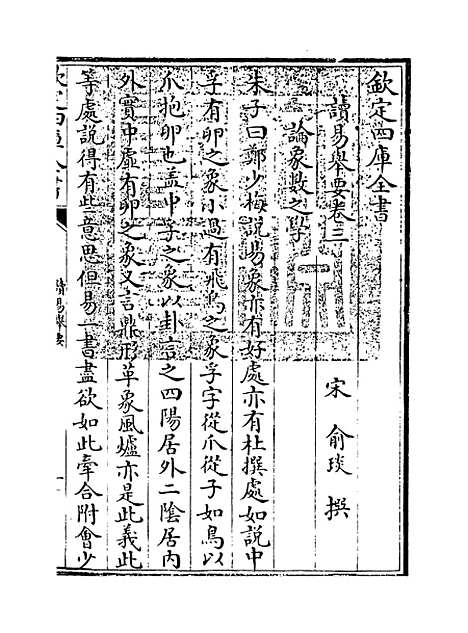 欽定四庫全書
讀易舉要卷三
宋 俞琰 撰
論象數之學
朱子曰鄭少梅說易象亦有好處亦有杜撰處如說中
孚有卵之象小過有飛鳥之象孚字從爪從子如鳥以
爪抱卵也蓋中孚之象以卦言之四陽居外二陰居內
外實中虛有卵之象又言鼎形革象風爐亦是此義此
等處說得有些意思但易一書盡欲如此牽合附會少
欽定四庫全書
讀易舉要
一